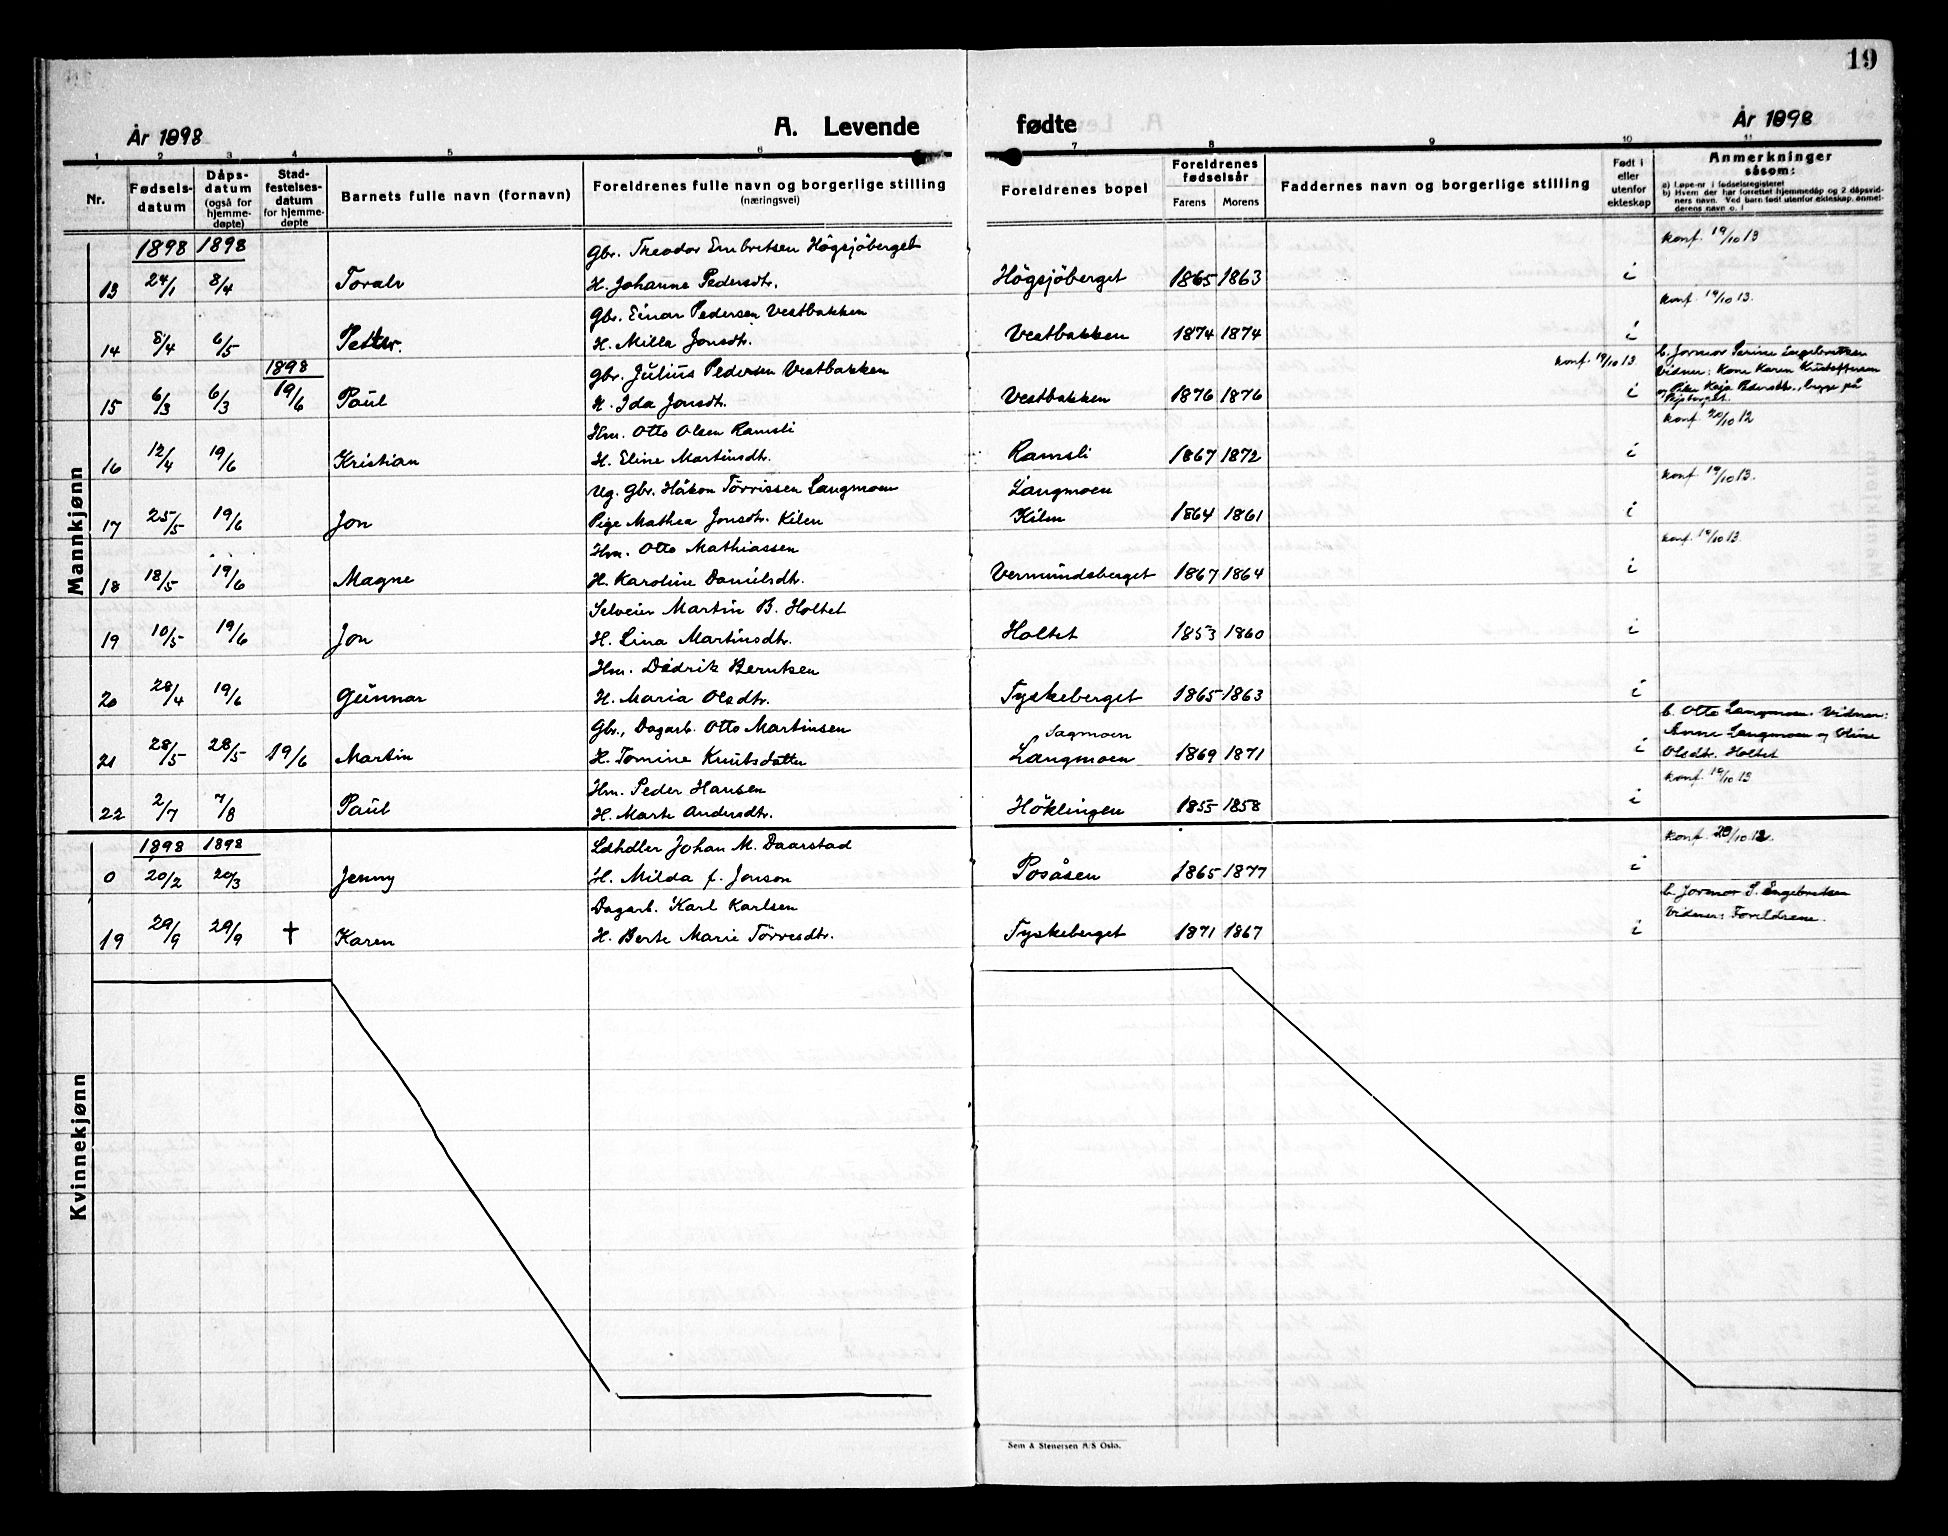 19
År 1898 A. Levende fødte År 1898
1 2 3 4 5 6 7 8 9 10 11
Nr. Fødsels-datum Dåps-datum (også for hjemme-døpte) Stad-festelses-datum for hjemme-døpte Barnets fulle navn (fornavn) Foreldrenes fulle navn og borgerlige stilling (næringsvei) Foreldrenes bopel Foreldrenes fødselsår Farens Morens Faddernes navn og borgerlige stilling Født i eller utenfor ekteskap Anmerkninger såsom:
a) Løpe-nr i fødselsregisteret
b) Hvem der har forrettet hjemmedåp og 2 dåpsvid-
ners navn. Ved barn født utenfor ekteskap, anmel-
derens navn o. l
Mannkjønn
1898 1898 Gbr. Theodor Embretsen Högsjöberget konf. 19/10 13
13 24/1 8/4 Toralv H. Johanne Pedersdtr. Högsjöberget 1865 1863 i
Gbr. Einar Pedersen Vestbakken konf. 19/10 13.
14 8/4 6/5 Petter. H. Milla Jonsdtr. Vestbakken 1874 1874 i
1898 Gbr. Julius Pedersen Vestbakken konf. 19/10 13 b. Jormor Serine Engebretsen
Vidner: Kone Karen Kristoffersen
15 6/3 6/3 19/6 Paul H. Ida Jonsdtr. Vestbakken 1876 1876 i og Pike Kaja Pedersdtr., begge på
Hm. Otto Olsen Ramsli konf. 20/10 12
16 12/4 19/6 Kristian H. Eline Martinsdtr. Ramsli 1867 1872 i
Ug. Gbr. Håkon Törrissen Langmoen Langmoen konf. 19/10 13.
17 25/5 19/6 Jon Pige Mathea Jonsdtr. Kilen Kilen 1864 1861 i
Hm. Otto Mathiassen konf. 19/10 13.
18 18/5 19/6 Magne H. Karoline Danielsdtr. Vermundsberget 1867 1864 i
Selveier Martin B. Holtet
19 10/5 19/6 Jon H. Lina Martinsdtr. Holtet 1853 1860 i
Hm. Didrik Berntsen
20 28/4 19/6 Gunnar H. Maria Olsdtr. Tyskeberget 1865 1863 i
Gbr., Dagarb. Otto Martinsen Sagmoen b. Otto Langmoen. Vidner:
Anne Langmoen og Oline
21 28/5 28/5 19/6 Martin H. Tomine Knutsdatter Langmoen 1869 1871 i Olsdtr. Holtet
Hm. Peder Hansen konf. 19/10 13
22 2/7 7/8 Paul H. Marte Andersdtr. Höklingen 1855 1858 i
Kvinnekjønn
1898 1898 Ldhdler Johan M. Daarstad konf. 20/10 12.
0 20/2 20/3 Jenny H. Milda f. Jonson Posåsen 1865 1877 i
Dagarb. Karl Karlsen b. Jormor S. Engebretsen
Vidner: Foreldrene.
19 29/9 29/9 † Karen H. Berte Marie Törresdtr. Tyskeberget 1871 1867 i
Sem & Stenersen A/S Oslo.